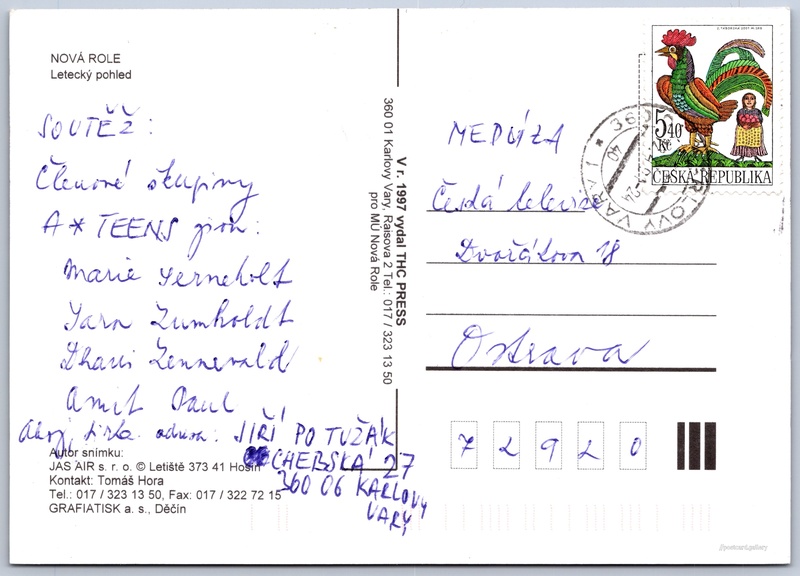 NOVÁ ROLE
Letecký pohled
SOUTĚŽ:
Členové skupiny
A*TEENS jsou:
Marie Serneholt
Sara Zumholdt
Dhani Lennevald
Amit Paul
Ahoj, adresa: JIŘÍ POTUŽÁK
CHEBSKÁ 27
360 06 KARLOVY
VARY
Autor snímku:
JAS AIR s. r. o. © Letiště 373 41 Hosín
Kontakt: Tomáš Hora
Tel.: 017 / 323 13 50, Fax: 017 / 322 72 15
GRAFIATISK a. s., Děčín
V r. 1997 vydal THC PRESS
360 01 Karlovy Vary, Raisova 2 Tel.: 017 / 323 13 50
pro MÚ Nová Role
5,40
Kč
ČESKÁ REPUBLIKA
KARLOVY VARY 1
MEDÚZA
Česká televize
Dvořákova 18
Ostrava
72920
postcard.gallery